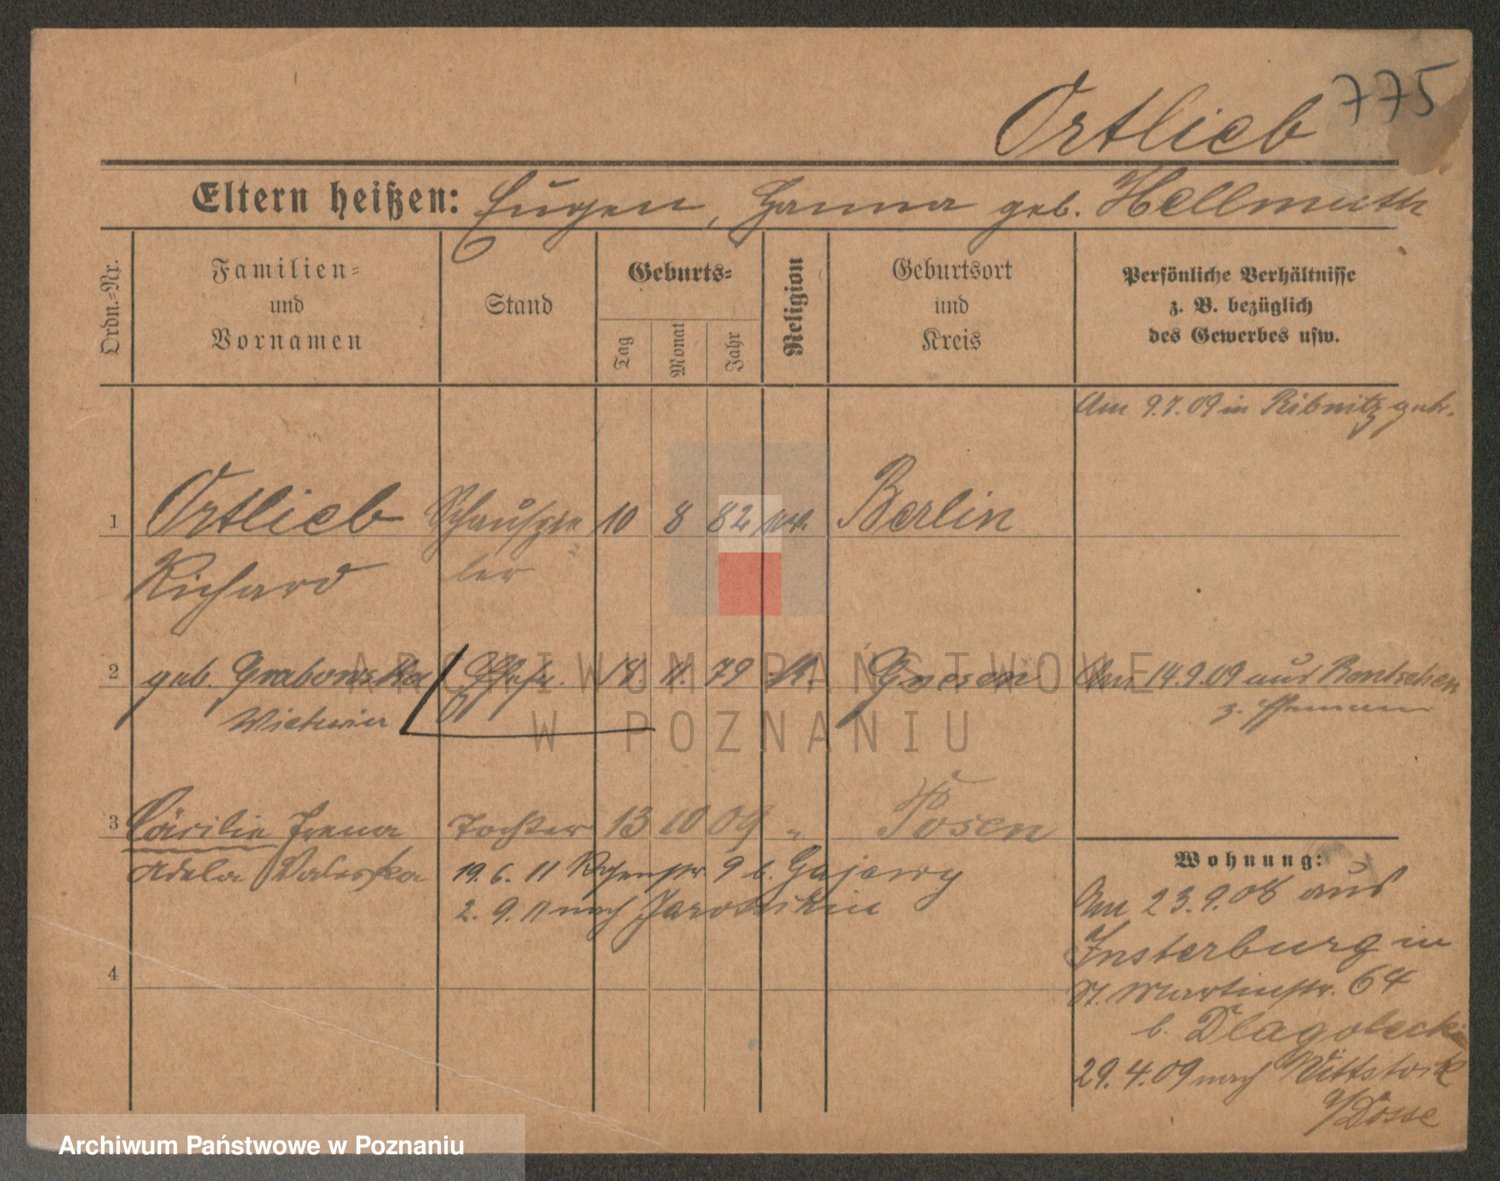 775
Ortlieb
Eltern heißen: Eugen, Hanna geb. Hellmuth
Ordn.-Nr.
Familien-
und
Vornamen
Stand
Geburts-
Tag
Monat
Jahr
Religion
Geburtsort
und
Kreis
Persönliche Verhältnisse
z. B. bezüglich
des Gewerbes usw.
Am 9.7.09 in Ribnitz geh.
1 Ortlieb Schauspie 10 8 82 Berlin
Richard ler
2 geb. Grabowska Ehefr. 18. 11. 79 K. Gnesen Am 14.9.09 aus Bentschen
z.
3 Cäcilie Irena Tochter 13 10 09 " Posen
Adela Valeska 19. 6. 11 9 b. Gajewy
2. 9. 11 nach Jarotschin
4
Wohnung:
Am 23.9.08 aus
Insterburg in
St. Martinstr. 64
b. Dlagolecki
29.4.09 nach Wittstock
a/Dosse
ARCHIWUM PAŃSTWOWE
W POZNANIU
Archiwum Państwowe w Poznaniu